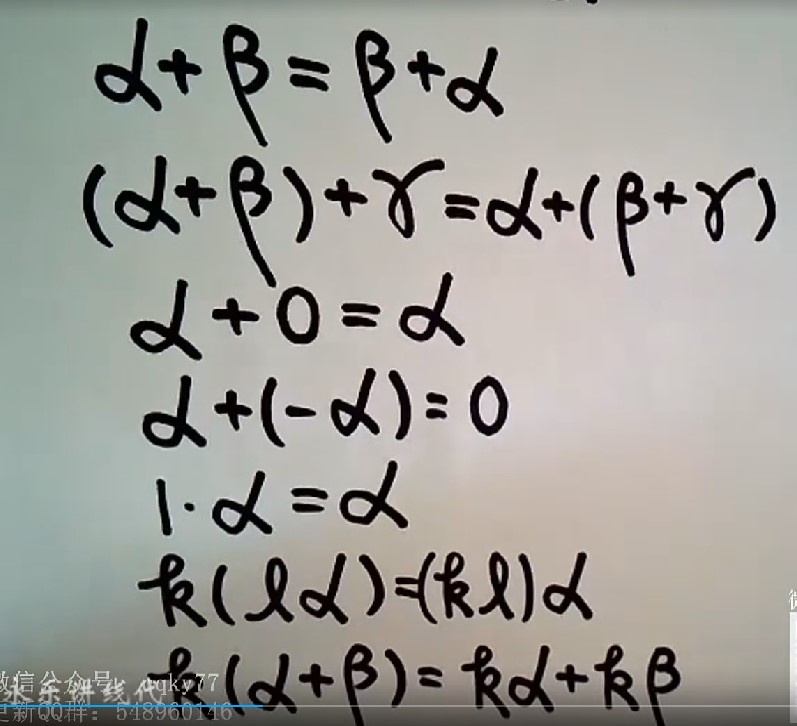 α+β=β+α
(α+β)+γ=α+(β+γ)
α+0=α
α+(-α)=0
1·α=α
k(lα)=(kl)α
k(α+β)=kα+kβ
微信公众号: qky77
永乐讲线代
更新QQ群: 548960146
微